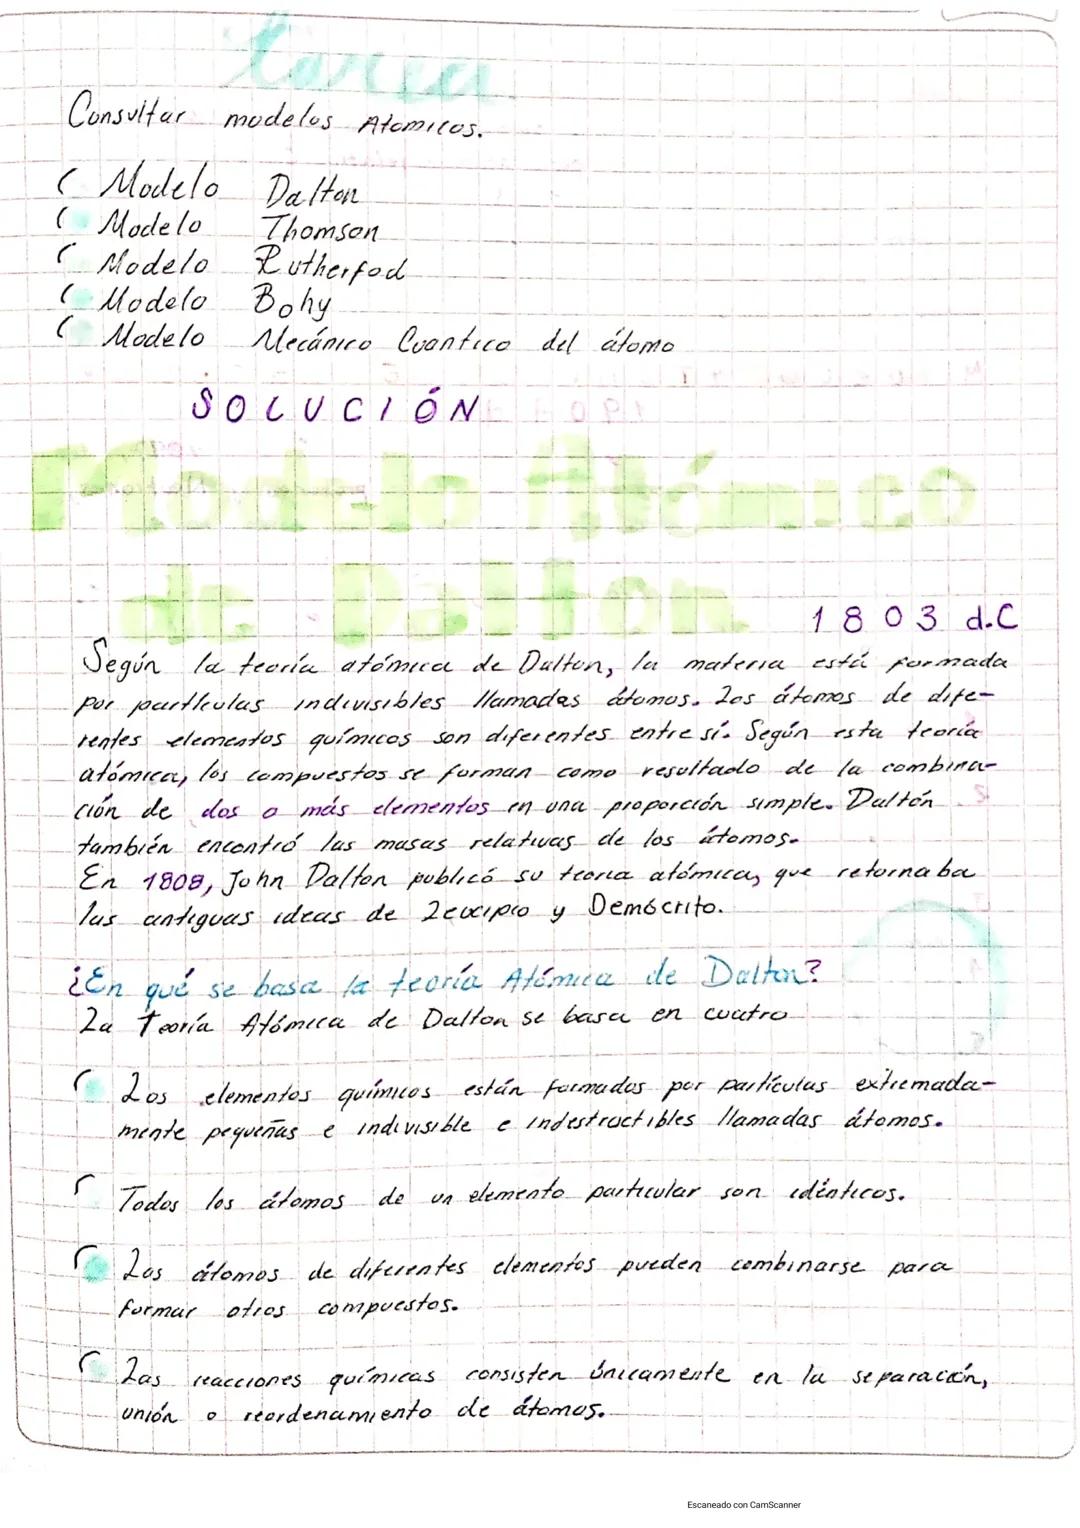 Tarea
Consultar modelos Atomicos.
Modelo Dalton
Modelo Thomson
Modelo Rutherfod
Modelo Bohy
Modelo Mecánico Cuantico del átomo
SOLUCIÓN
Modelo Atómico
de Dalton
1803 d.C
Según la teoría atómica de Dalton, la materia está formada
por partículas indivisibles llamadas átomos. Los átomos de dife-
rentes elementos químicos son diferentes entre sí. Según esta teoría
atómica, los compuestos se forman como resultado de la combina-
ción de dos o más elementos en una proporción simple. Daltón
también encontró las masas relativas de los átomos.
En 1808, John Dalton publicó su teoria atómica, que retornaba
las antiguas ideas de Leucipio y Demócrito.
¿En qué se basa la teoría Atómica de Dalton?
La Teoría Atómica de Dalton se basa en cuatro
Los elementos químicos están formados por partículas extremada-
mente pequeñas e indivisible e indestructibles llamadas átomos.
Todos los átomos de un elemento particular son idénticos.
Los átomos de diferentes elementos pueden combinarse para
formar otros compuestos.
Las reacciones químicas consisten únicamente en la separación,
unión o reordenamiento de átomos.
Escaneado con CamScanner